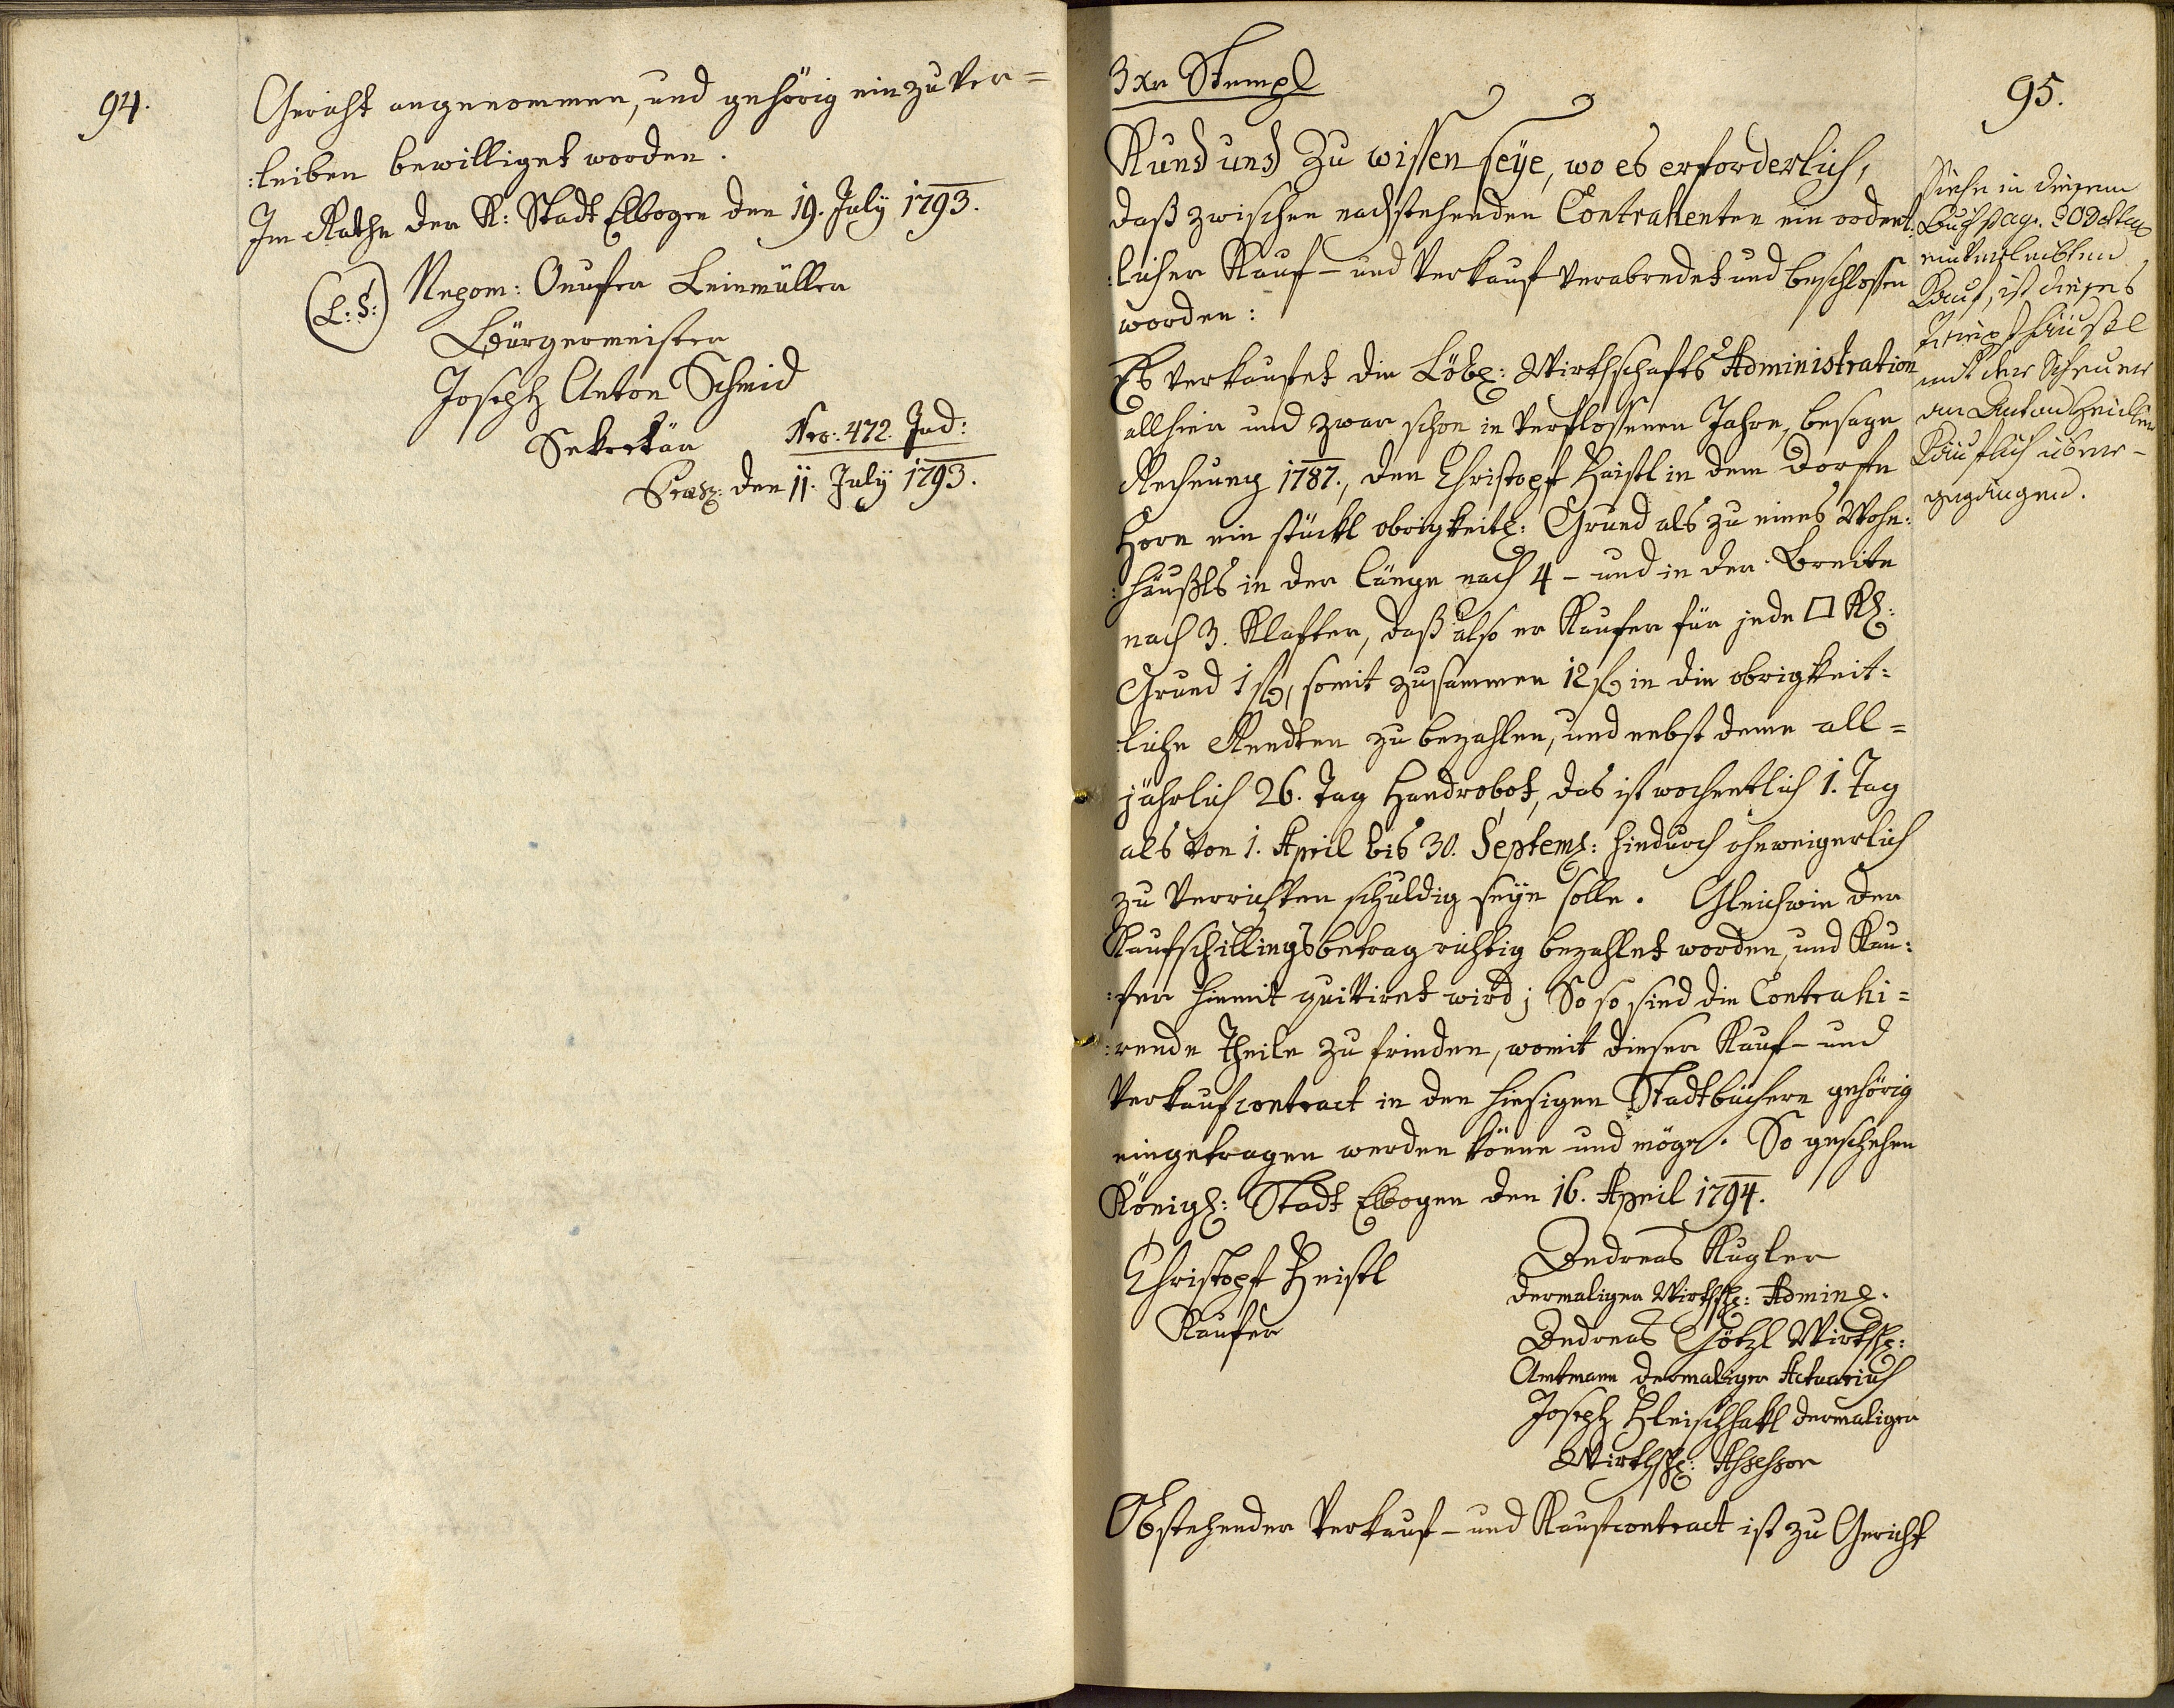 94.
Gericht angenommen, und gehörig einzuver=
:leiben bewilliget worden.
Im Rathe der K: Stadt Elbogen den 19. July 1793.
(L: S:) Nepom: Onufer Leinmüller
Bürgermeister
Joseph Anton Schmid
Sekretär Nro: 472. Jud:
Praes: den 11. July 1793.
3 xr Stempl
95.
Kund und zu wissen seye, wo es erforderlich,
daß zwischen nachstehenden Contrahenten ein ordent:
:licher Kauf- und Verkauf verabredet und beschlossen
worden:
Es verkaufet die Löbl: Wirthschafts Administration
allhier und zwar schon in verflossenen Jahre, besage
Rechnung 1787., den Christoph Heistl in dem Dorfe
Horn ein stückl obrigkeitl: Grund als zu eines Wohn:
:häußls in der Länge nach 4 - und in der Breite
nach 3. Klafter, daß also er Kaufer für jede □ Kl:
Grund 1 f, somit zusammen 12 f in die obrigkeit:
:liche Rendten zu bezahlen, und nebst deme all=
jährlich 26. Tag Handrobot, das ist wochentlich 1. Tag
als von 1. April bis 30. Septemb: hindurch ohnweigerlich
zu verrichten schuldig seyn solle. Gleichwie der
Kaufschillingsbetrag richtig bezahlet worden, und Kau:
:fer hiemit quittiret wird; So so sind die Contrahi=
:rende Theile zu frieden, womit dieser Kauf- und
Verkaufcontract in den hiesigen Stadtbüchern gehörig
eingetragen werden könne und möge. So geschehen
Königl: Stadt Elbogen den 16. April 1794.
Christoph Heistl
Kaufer
Andreas Kugler
dermaliger Wirthsch: Admin:
Andreas Götzl Wirthsch:
Amtmann dermaliger Actuarius
Joseph Fleischhakl dermaliger
Wirthsch: Assessor
Obstehender Verkauf- und Kaufcontract ist zu Gericht
Siehe in diesem
Buch pag.
einverleibten
Kauf, ist dieses
häußl
mit der Scheuer
an Anton
Käuflich über-
gegangen.